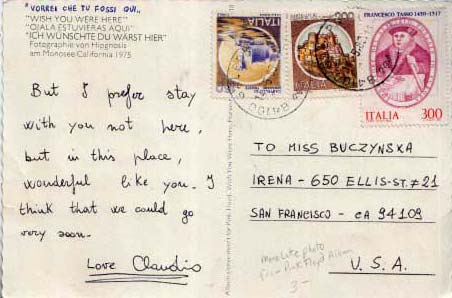 "VORREI CHE TU FOSSI QUI..."
"WISH YOU WERE HERE"
"OJALA ESTUVIERAS AQUI"
"ICH WÜNSCHTE DU WÄRST HIER"
Fotographie von Hipgnosis
am Monosee California 1975
But I prefer stay
with you not here,
but in this place,
wonderful like you. I
think that we could go
very soon.
Love Claudio
ITALIA
ITALIA
FRANCESCO TASSO 1459-1517
ITALIA 300
TO MISS BUCZYNSKA
IRENA - 650 ELLIS-ST. # 21
SAN FRANCISCO - CA 94109
U.S.A.
Mono Lake photo
from Pink Floyd Album
3-